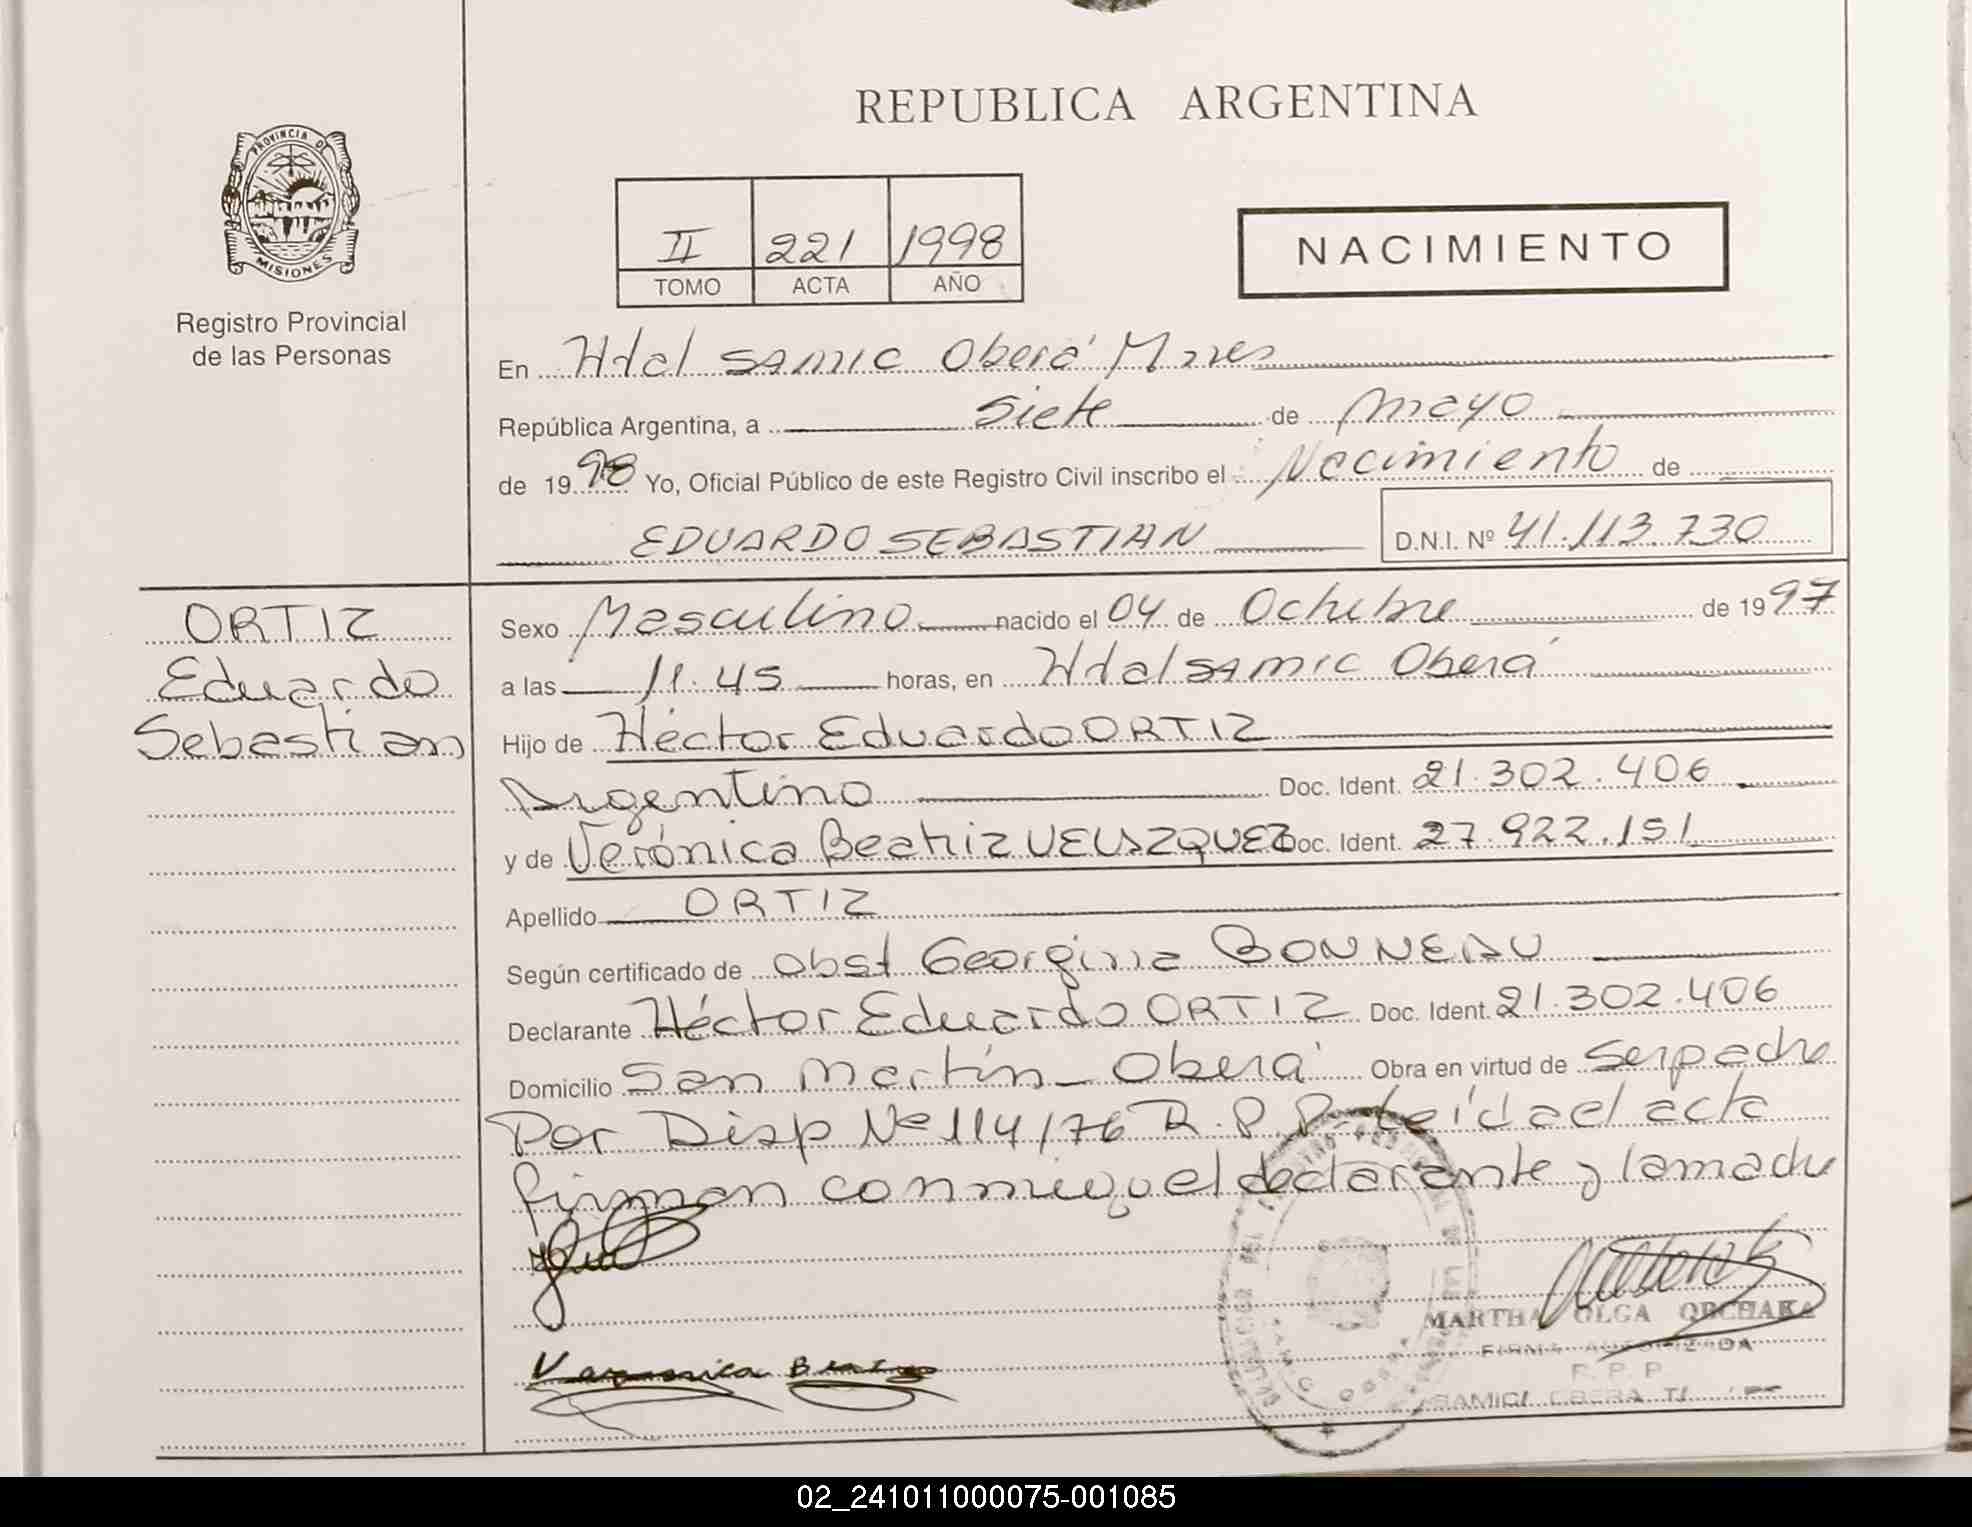 REPUBLICA ARGENTINA
PROVINCIA DE
MISIONES
Registro Provincial
de las Personas
II 221 1998
TOMO ACTA AÑO
NACIMIENTO
En Htal SAMIC Oberá Mnes
República Argentina, a siete de mayo
de 1998 Yo, Oficial Público de este Registro Civil inscribo el Nacimiento de
EDUARDO SEBASTIAN D.N.I. Nº 41.113.730
ORTIZ
Eduardo
Sebastian
Sexo Masculino nacido el 04 de Octubre de 1997
a las 11.45 horas, en Htal SAMIC Oberá
Hijo de Héctor Eduardo ORTIZ
Argentino Doc. Ident. 21.302.406
y de Verónica Beatriz VELAZQUEZ Doc. Ident. 27.922.151
Apellido ORTIZ
Según certificado de obst Georgina BONNEAU
Declarante Héctor Eduardo ORTIZ Doc. Ident. 21.302.406
Domicilio San Martín - Oberá Obra en virtud de ser padre
Por Disp Nº 114/76 R.P.P- Leída el acta
firman conmigo el declarante y la madre
MARTHA OLGA ORCHAKA
FIRMA AUTORIZADA
R. P. P
SAMIC/ OBERA
02_241011000075-001085